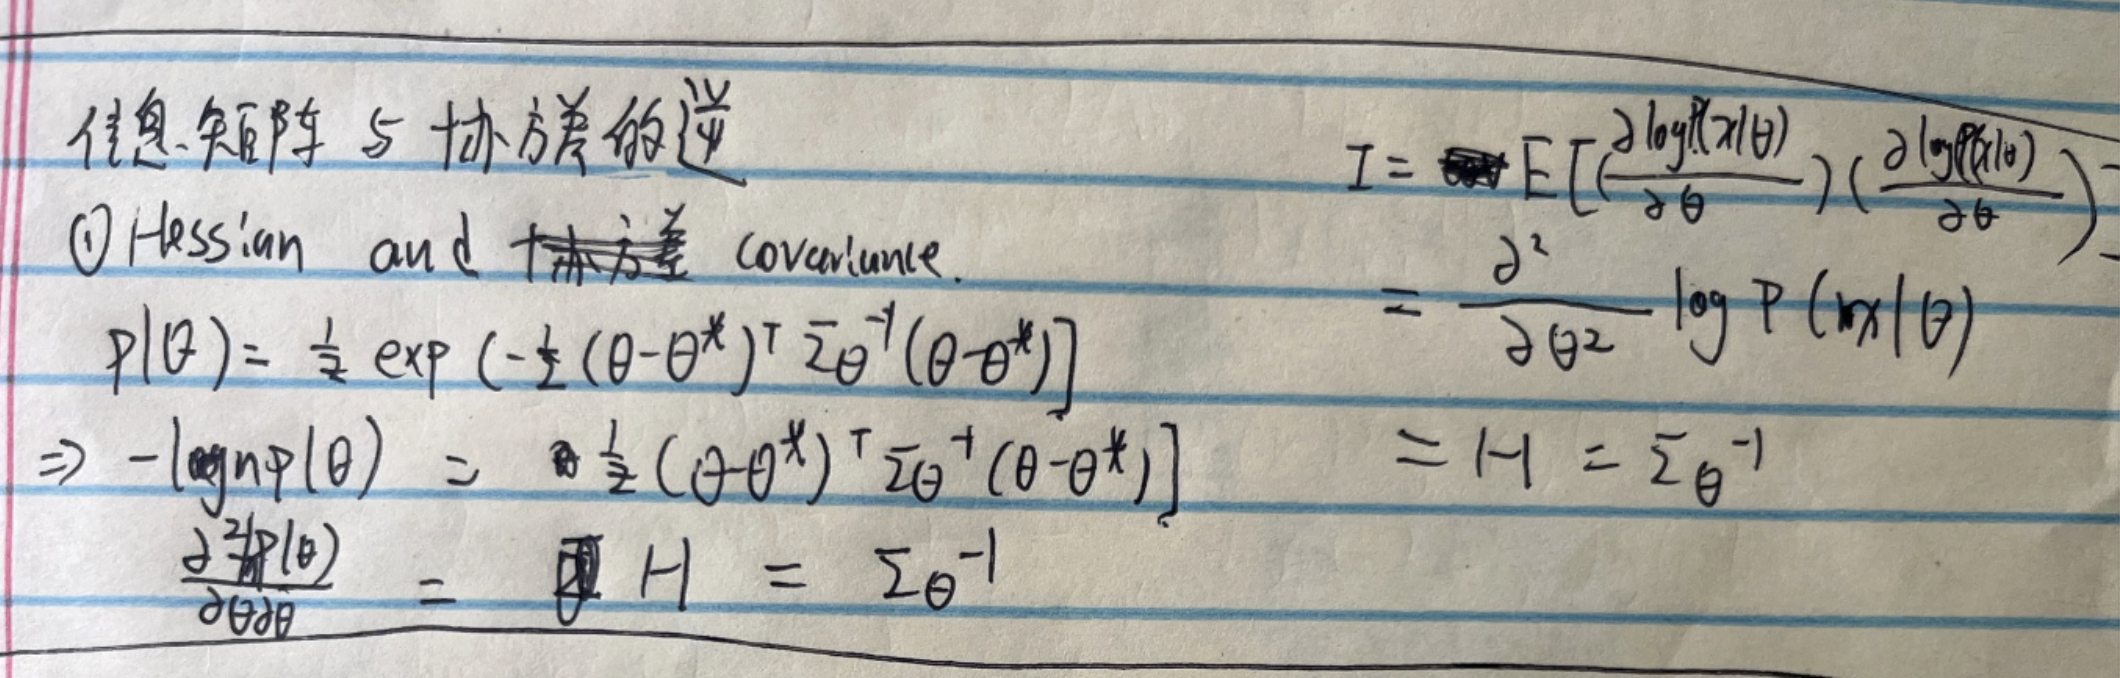 信息矩阵与协方差的逆
① Hessian and covariance.
P(θ) = 1/z exp (-1/2 (θ-θ*)ᵀ Σθ⁻¹ (θ-θ*)]
⇒ -lognp(θ) = 1/2 (θ-θ*)ᵀ Σθ⁻¹ (θ-θ*)]
∂²P(θ)/∂θ∂θ = H = Σθ⁻¹
I = E[(∂logP(x|θ)/∂θ)(∂logP(x|θ)/∂θ)
= ∂²/∂θ² log P(x|θ)
= H = Σθ⁻¹